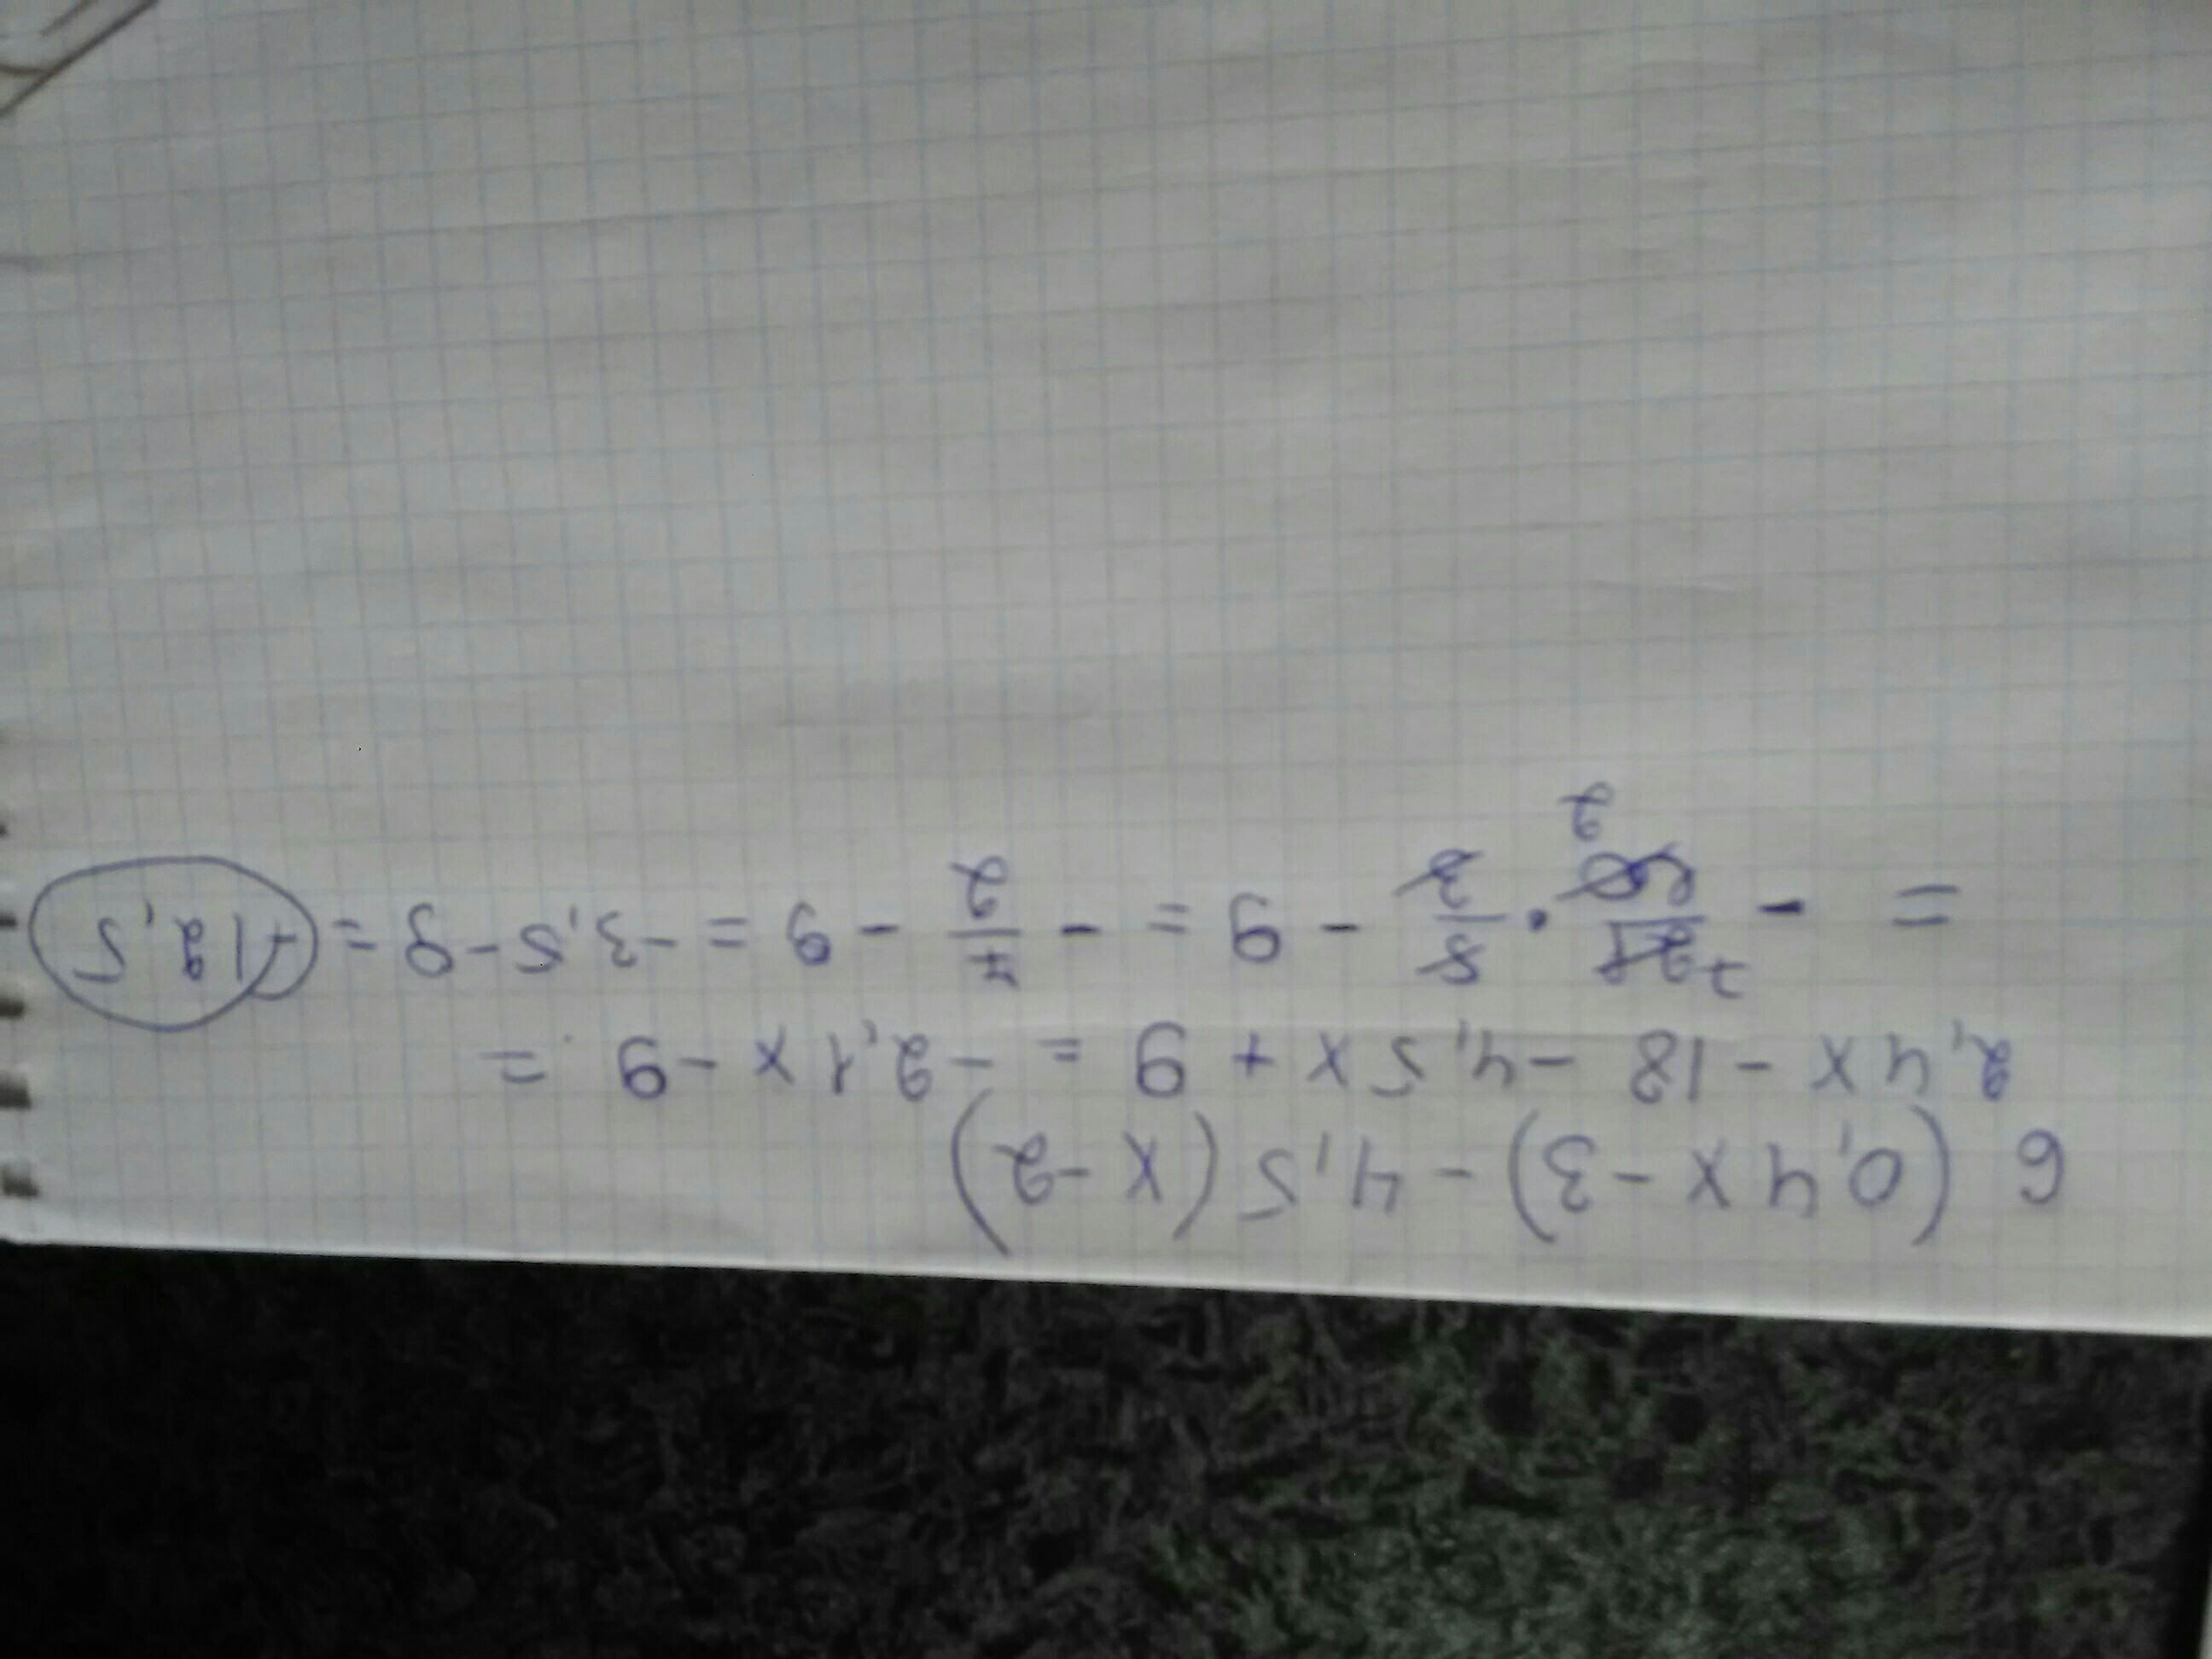 6 (0,4x -3) -4,5 (x -2)
2,4x -18 -4,5x +9 = -2,1x -9 =
= - 7 21/10 2 · 5/3 - 9 = - 7/2 - 9 = -3,5 -9 = -12,5